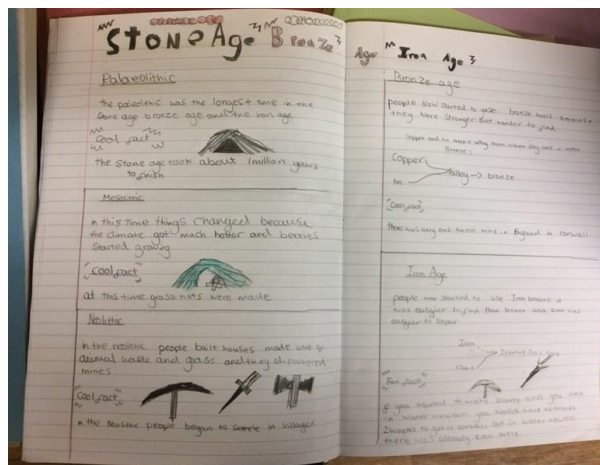 Stone Age Bronze Age Iron Age
Palaeolithic
the paleolithic was the longest time in the
stone age bronze age and the iron age
Cool fact
the Stone age took about 1million years
to finish
Mesolithic
in this time things changed because
the climate got much hotter and berries
started growing
Cool fact
at this time grass huts were made
Neolithic
in the neolithic people built houses made out of
animal waste and grass and they discovered
mines
Cool fact
in the Neolithic people began to settle in villages
Bronze age
people now started to use bronze tools because
they were stronger but harder to find
Copper and tin make
Bronze
Copper
Alloy → bronze
tin
Cool fact
there was only one tin mine in England in cornwall
Iron Age
people now started to use Iron because it
was easyier to find than bronze and
easyier to
Iron
Iron
Fun fact
if you wanted to make bronze and you lived
in you would have to travel
2 weeks to get to cornwall but in
there was already Iron